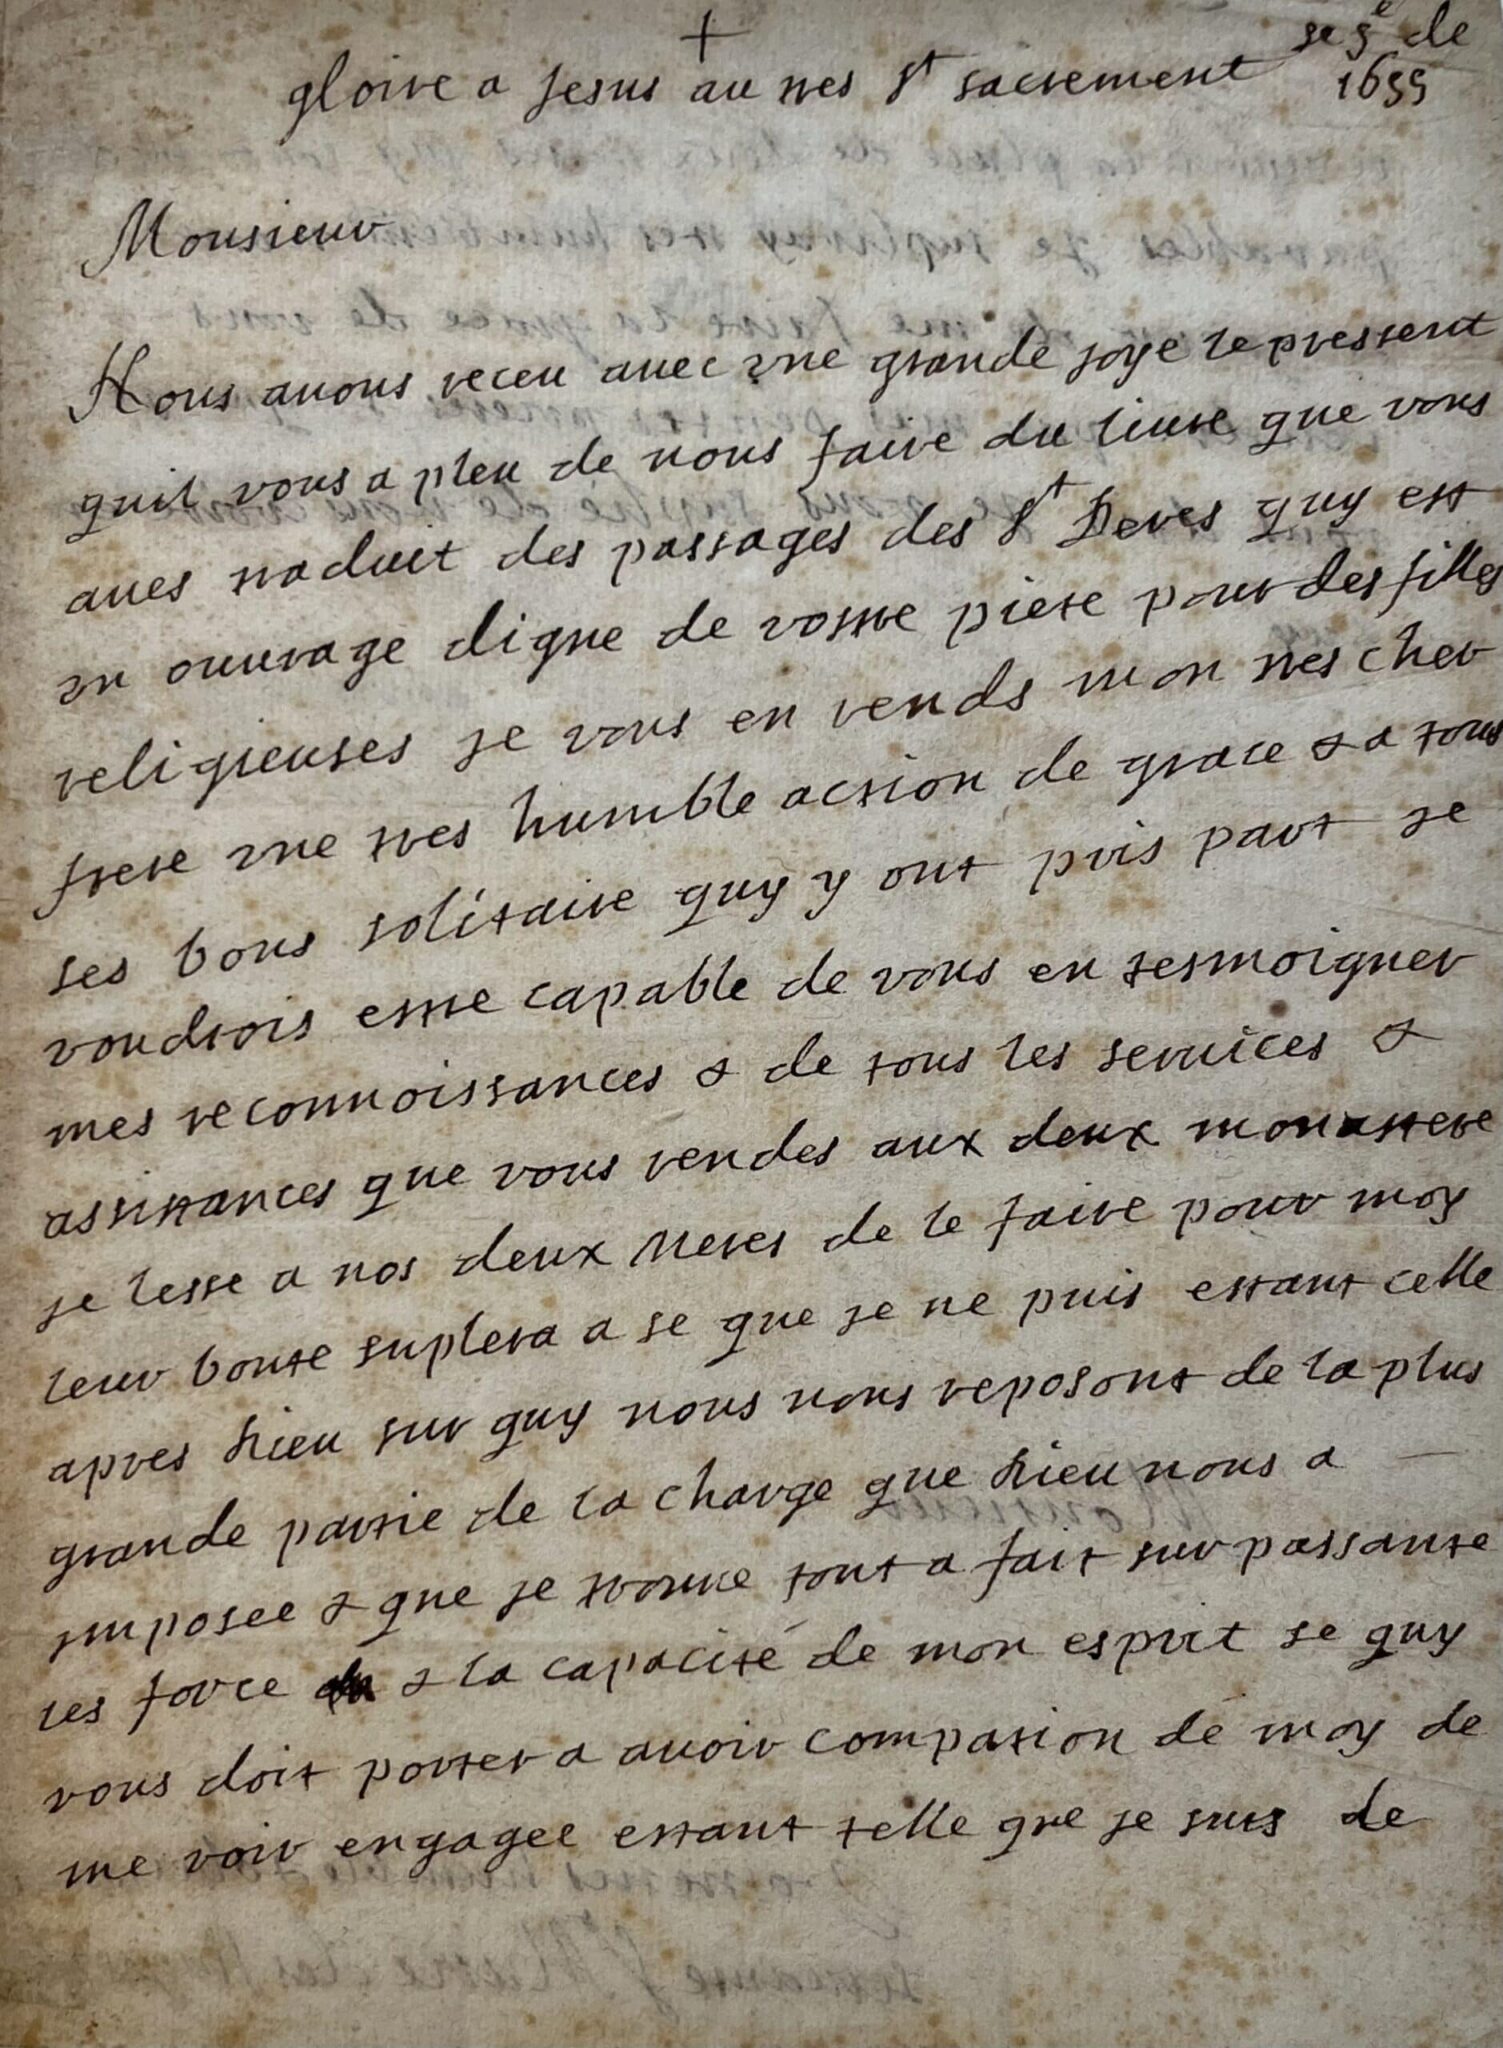 +
gloire a Jesus au tres St sacrement
1655
Monsieur
Nous auons receu auec vne grande joye le pressent
quil vous a pleu de nous faire du liure que vous
aues traduit des passages des St Peres quy est
vn ouurage digne de vostre piete pour des filles
religieuses je vous en rends mon tres cher
frere vne tres humble action de grace & a tous
ses bons solitaire quy y ont pris part je
voudrois estre capable de vous en tesmoigner
mes reconnoissances & de tous les seruices &
assistances que vous rendes aux deux monastere
je lesse a nos deux Meres de le faire pour moy
leur bonte suplera a se que je ne puis estant celle
apres Dieu sur quy nous nous reposons de la plus
grande partie de la charge que Dieu nous a
imposee & que je trouue tout a fait surpassante
les force & la capacité de mon esprit se quy
vous doit porter a auoir compasion de moy de
me voir engagee estant telle que je suis de